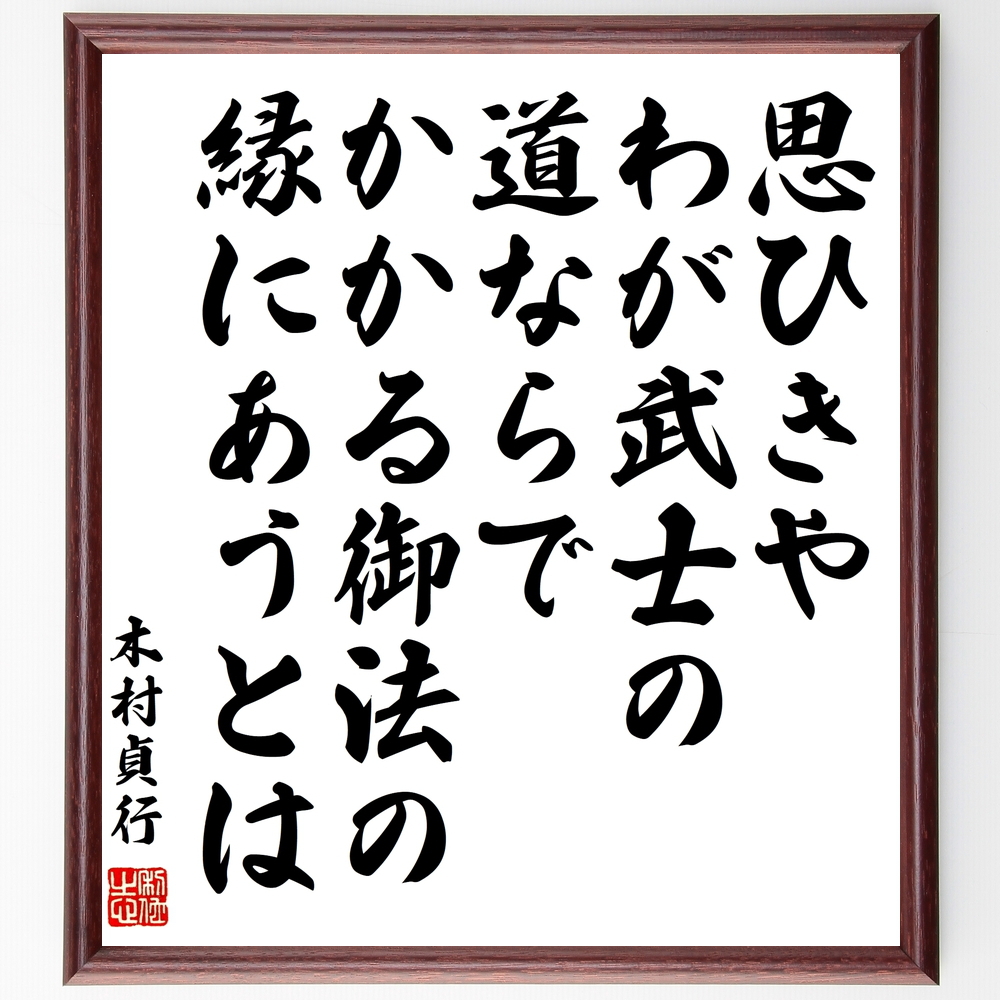 思ひきや
わが武士の
道ならで
かかる御法の
縁にあうとは
木村貞行